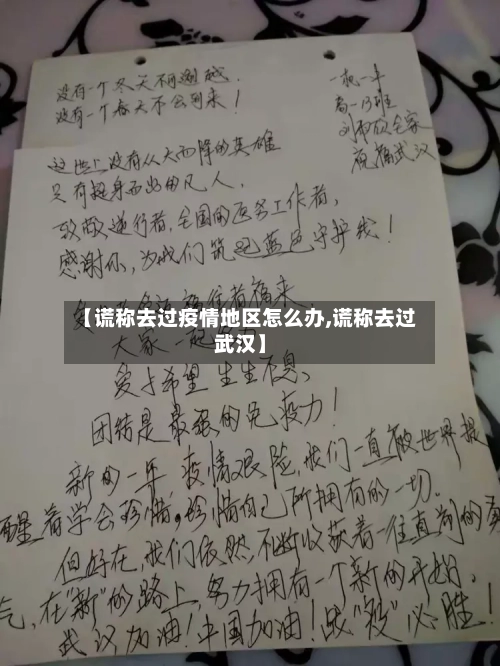 没有一个冬天不可逾越.
没有一个春天不会到来!
一执一年
高一13班
全家
祝福武汉
这世上没有从天而降的英雄
只有挺身而出的凡人,
致敬逆行者,全国的医务工作者,
感谢你,为我们筑起蓝色守护线!
爱
福来,
【谎称去过疫情地区怎么办,谎称去过
武汉】
大家一起
爱与希望生生不息、
团结是最强的免疫力!
新的一年,疫情艰险,我们一直被世界提
醒着学会珍惜,珍惜自己所拥有的一切.
但好在,我们依然不断收获着一往直前的勇
气,在"新"的路上,努力拥有一个新的开始.
武汉加油!中国加油!战"役"必胜!